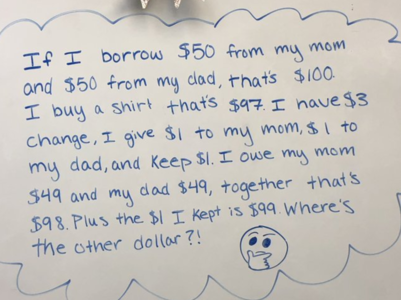 If I borrow $50 from my mom
and $50 from my dad, that's $100.
I buy a shirt that's $97. I have $3
change, I give $1 to my mom, $1 to
my dad, and keep $1. I owe my mom
$49 and my dad $49, together that's
$98. Plus the $1 I kept is $99. Where's
the other dollar?!